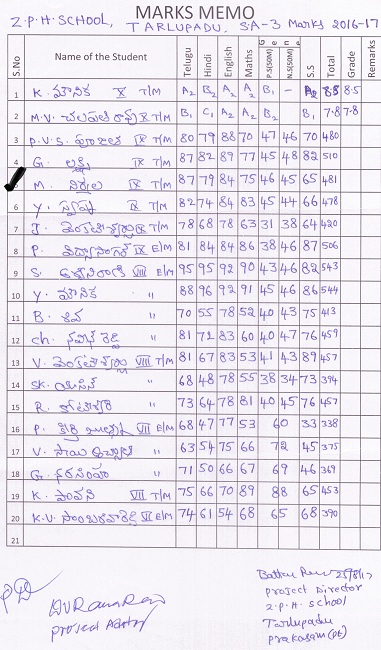 MARKS MEMO
Z.P.H. SCHOOL, TARLUPADU, SA-3 Marks 2016-17
S.No Name of the Student Telugu Hindi English Maths Gene P.S(50M) N.S(50M) S.S Total Grade Remarks
1 K. మౌనిక X T/M A2 B2 A2 A2 B1 - A2 8.8 8.5
2 M.V. X T/M B1 C1 A2 A2 B2 B1 7.8 7.8
3 P.V.S. IX T/M 80 79 88 70 47 46 70 480
4 G. లక్ష్మి IX T/M 87 82 89 77 45 48 82 510
5 M. నిర్మల IX T/M 87 79 84 75 46 45 65 481
6 Y. స్వప్న IX T/M 82 74 84 83 45 44 66 478
7 J. వెంకటేశ్వర్లు IX T/M 78 68 78 63 31 38 64 420
8 P. విద్యాసాగర్ IX E/M 81 84 84 86 38 46 87 506
9 S. VIII E/M 95 95 92 90 43 46 82 543
10 Y. మౌనిక " 88 96 92 91 45 46 86 544
11 B. శివ " 70 55 78 52 40 43 75 413
12 ch. నవీన్ రెడ్డి " 81 72 83 60 40 47 76 459
13 V. వెంకటేశ్వర్లు VIII T/M 81 67 83 53 41 43 89 457
14 SK. యాసిన్ " 68 48 78 55 38 34 73 394
15 R. " 73 64 78 81 40 45 76 457
16 P. VII E/M 68 47 77 53 60 33 338
17 V. సాయి " 63 54 75 66 72 45 375
18 G. నరసింహ " 71 50 66 67 69 46 369
19 K. పావని VII T/M 75 66 70 89 88 65 453
20 K.V. VII E/M 74 61 54 68 65 68 390
21
25/8/17
Project Director
Z.P.H. School
Tarlupadu
Prakasam (Dt)